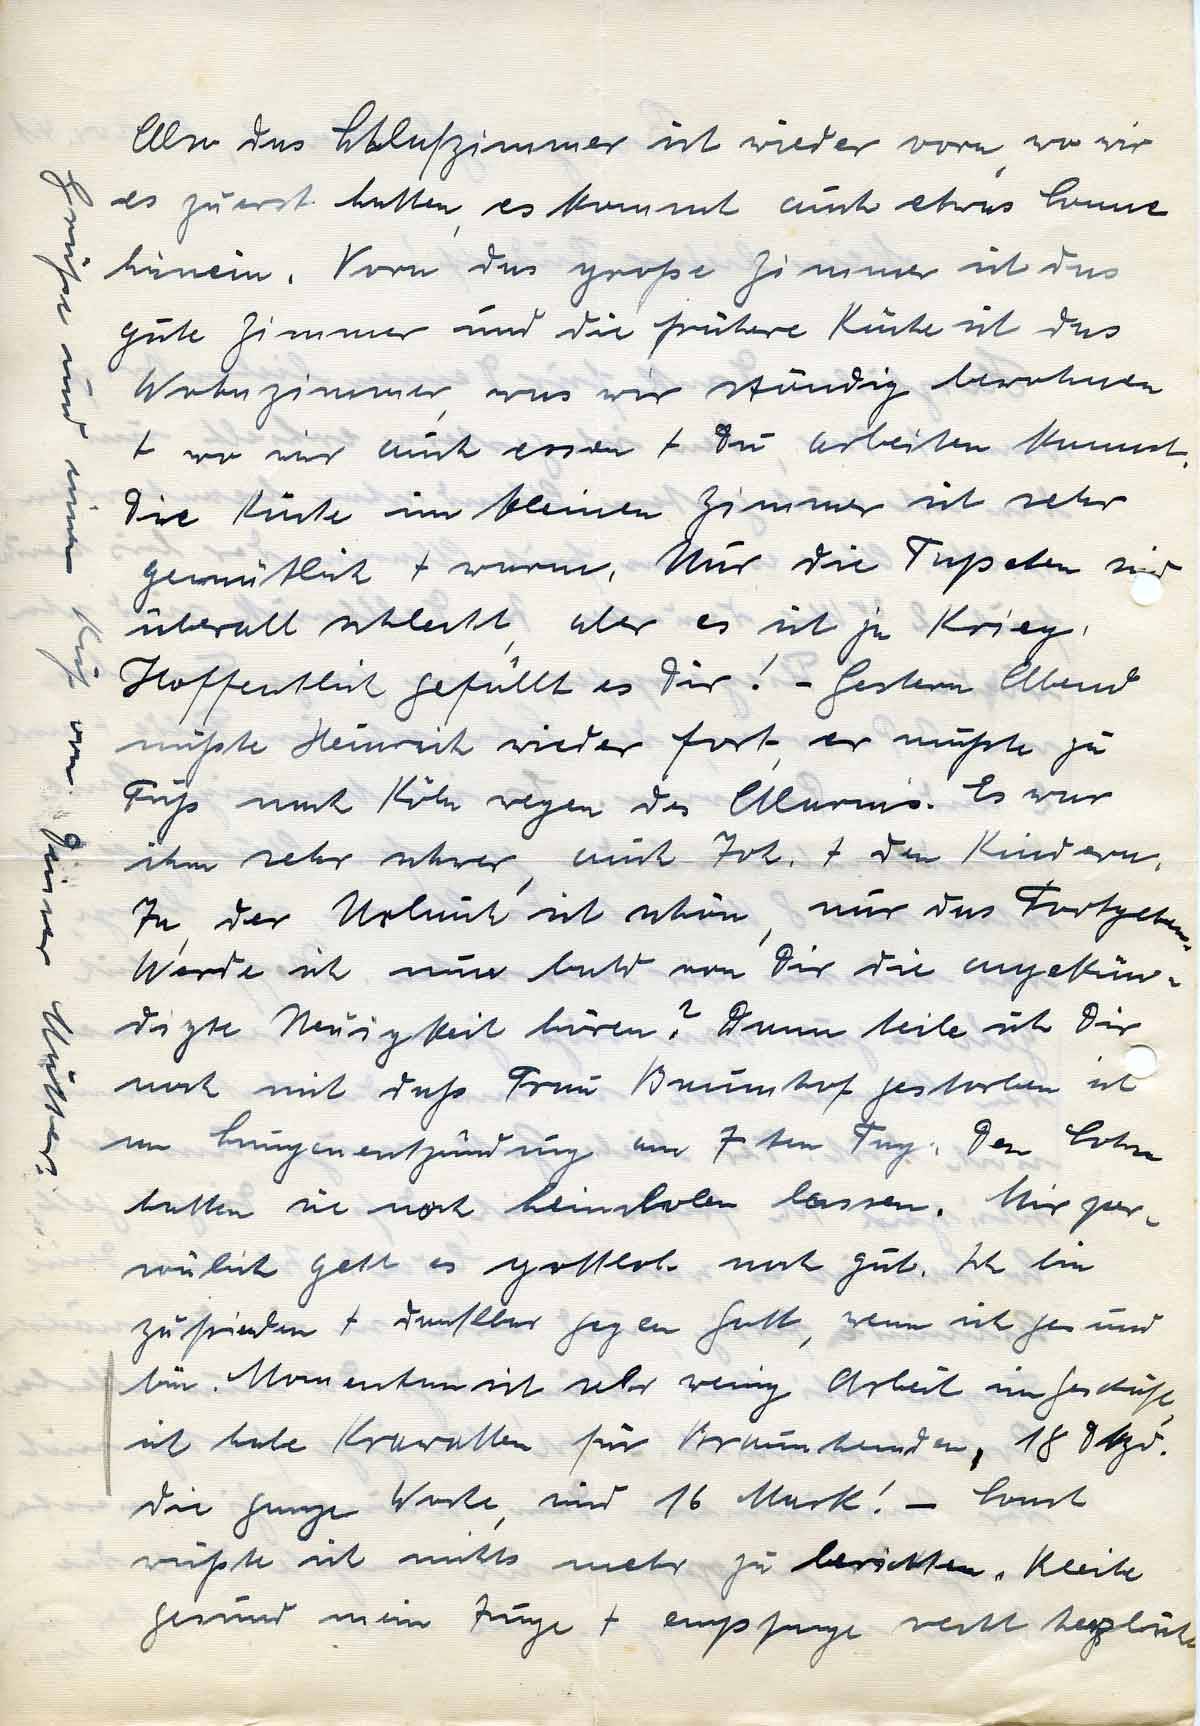 Also das Schlafzimmer ist wieder vorn, wo wir
es zuerst hatten, es kommt auch etwas Sonne
hinein. Vorn das große Zimmer ist das
gute Zimmer und die frühere Küche ist das
Wohnzimmer, was wir ständig bewohnen
+ wo wir auch essen + Du arbeiten kannst.
Die Küche im kleinen Zimmer ist sehr
gemütlich + warm. Nur die Tapeten sind
überall schlecht, aber es ist ja Krieg.
Hoffentlich gefällt es Dir! – Gestern Abend
mußte Heinrich wieder fort, er mußte zu
Fuß nach Köln wegen des Alarms. Es war
ihm sehr schwer, auch Joh. + den Kindern.
Ja, der Urlaub ist schön, nur das Fortgehen.
Werde ich nun bald von Dir die angekün-
digte Neuigkeit hören? Dann teile ich Dir
noch mit daß Frau Baumhof gestorben ist
an Lungenentzündung am 7ten Tag. Den Sohn
hatten sie noch heimholen lassen. Mir per-
sönlich geht es gottlob noch gut. Ich bin
zufrieden + dankbar gegen Gott, wenn ich gesund
bin. Momentan ist sehr wenig Arbeit im Geschäft,
ich habe Krawatten für Braunhemden, 18 Dtzd.
die ganze Woche, sind 16 Mark! – Sonst
wüßte ich nichts mehr zu berichten. Bleibe
gesund mein Junge + empfange recht herzliche
Grüße und einen Kuß von Deiner Mutter.